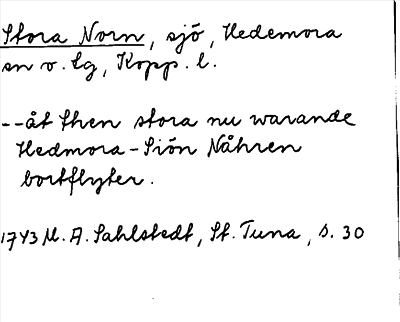 Stora Norn, sjö, Hedemora
sn o. tg, Kopp. l.
--åt then stora nu warande
Hedmora-Siön Nåhren
bortflyter.
1743 M. A. Sahlstedt, St. Tuna, s. 30